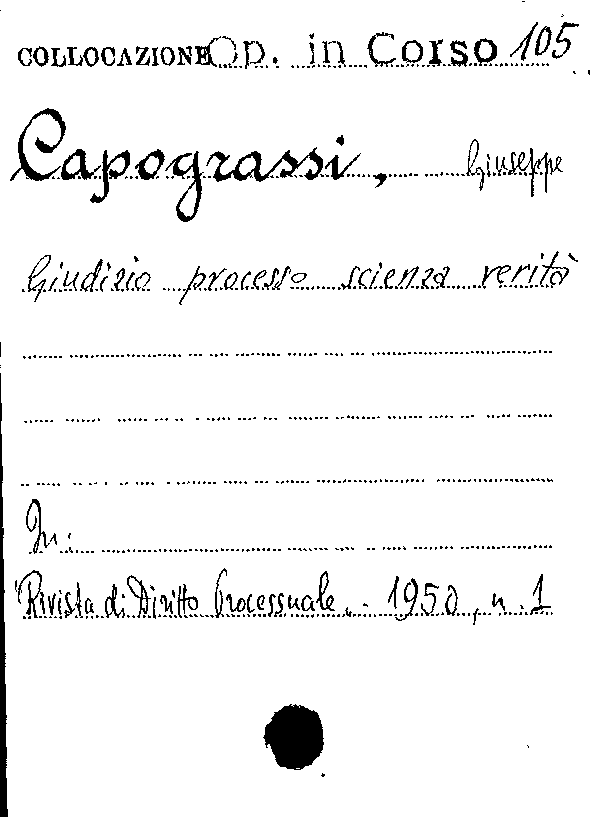 COLLOCAZIONE Op. in Corso 105
Capograssi, Giuseppe
Giudizio processo scienza verità
In:
"Rivista di Diritto Processuale". - 1950, n. 1